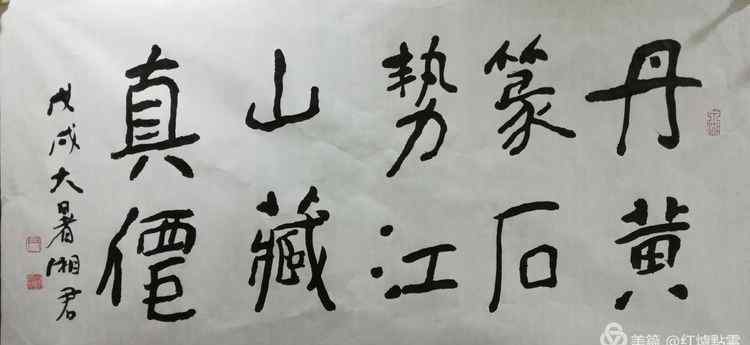 丹黄
篆石
势江
山藏
真僊
戊戌大暑湘君
美篇 @红炉點雪